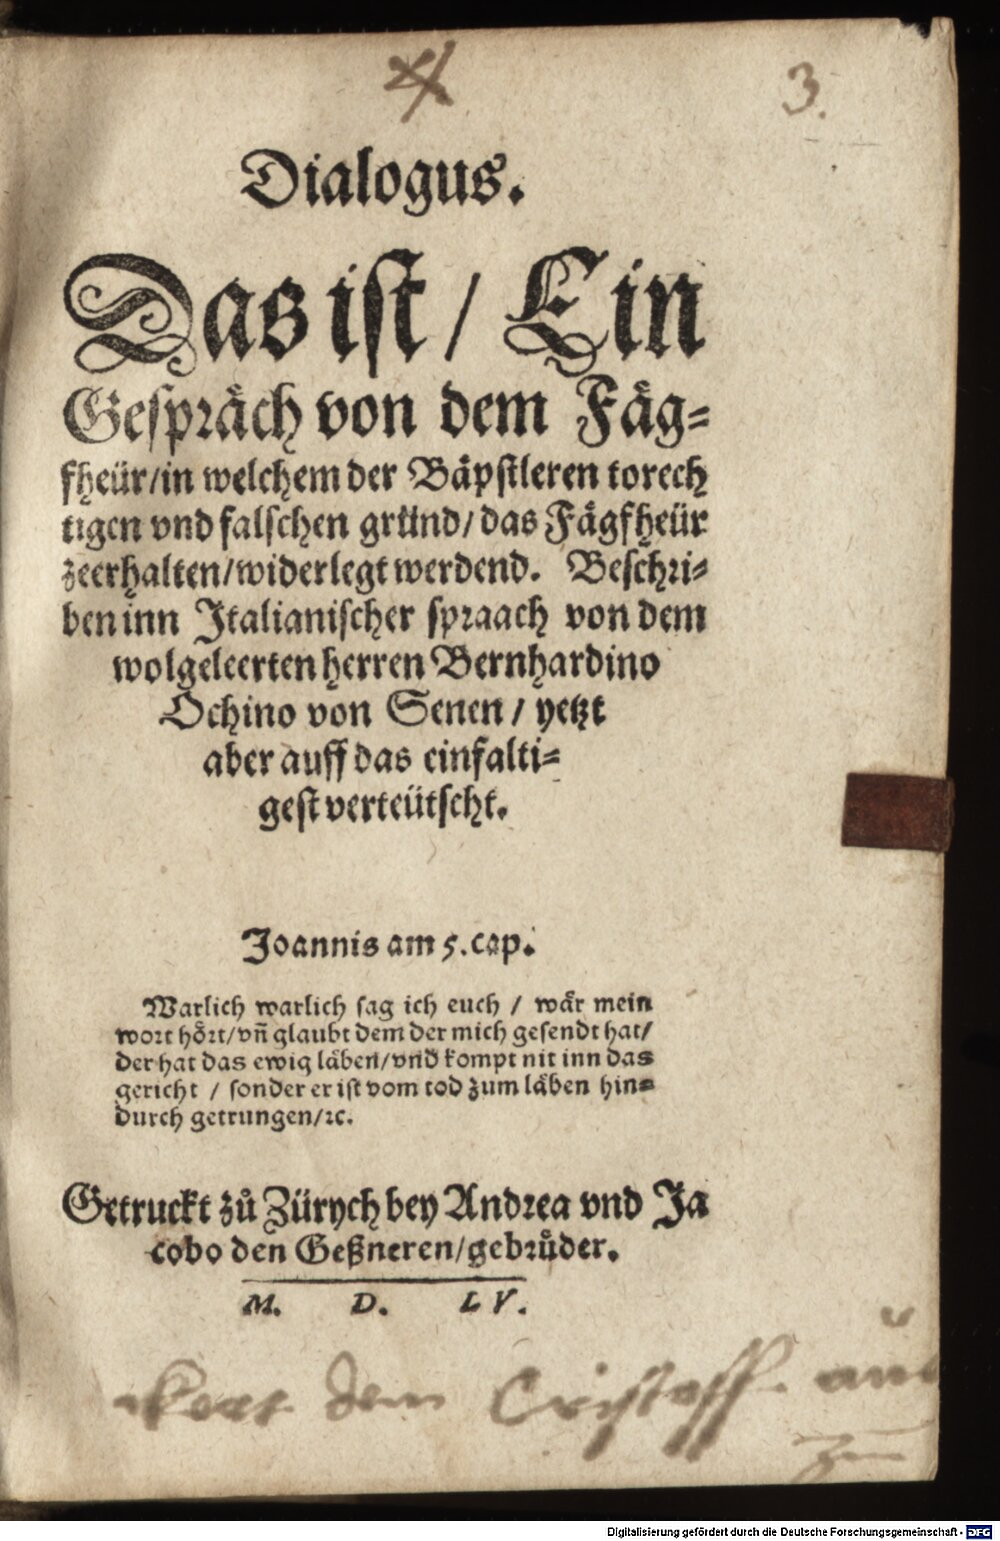 3.
Dialogus.
Das ist / Ein
Gespräch von dem Fäg-
fheür/in welchem der Bäpstleren torech
tigen vnd falschen gründ/das Fägfheür
zeerhalten/widerlegt werdend. Beschri-
ben inn Italianischer spraach von dem
wolgeleerten herren Bernhardino
Ochino von Senen / yetzt
aber auff das einfalti-
gest verteütscht.
Joannis am 5. cap.
Warlich warlich sag ich euch / wär mein
wort hört/vñ glaubt dem der mich gesendt hat/
der hat das ewig läben/vnd kompt nit inn das
gericht / sonder er ist vom tod zum läben hin-
durch getrungen/ꝛc.
Getruckt zů Zürych bey Andrea vnd Ja
cobo den Geßneren/gebrůder.
M. D. LV.
dem Cristoff
Digitalisierung gefördert durch die Deutsche Forschungsgemeinschaft - DFG